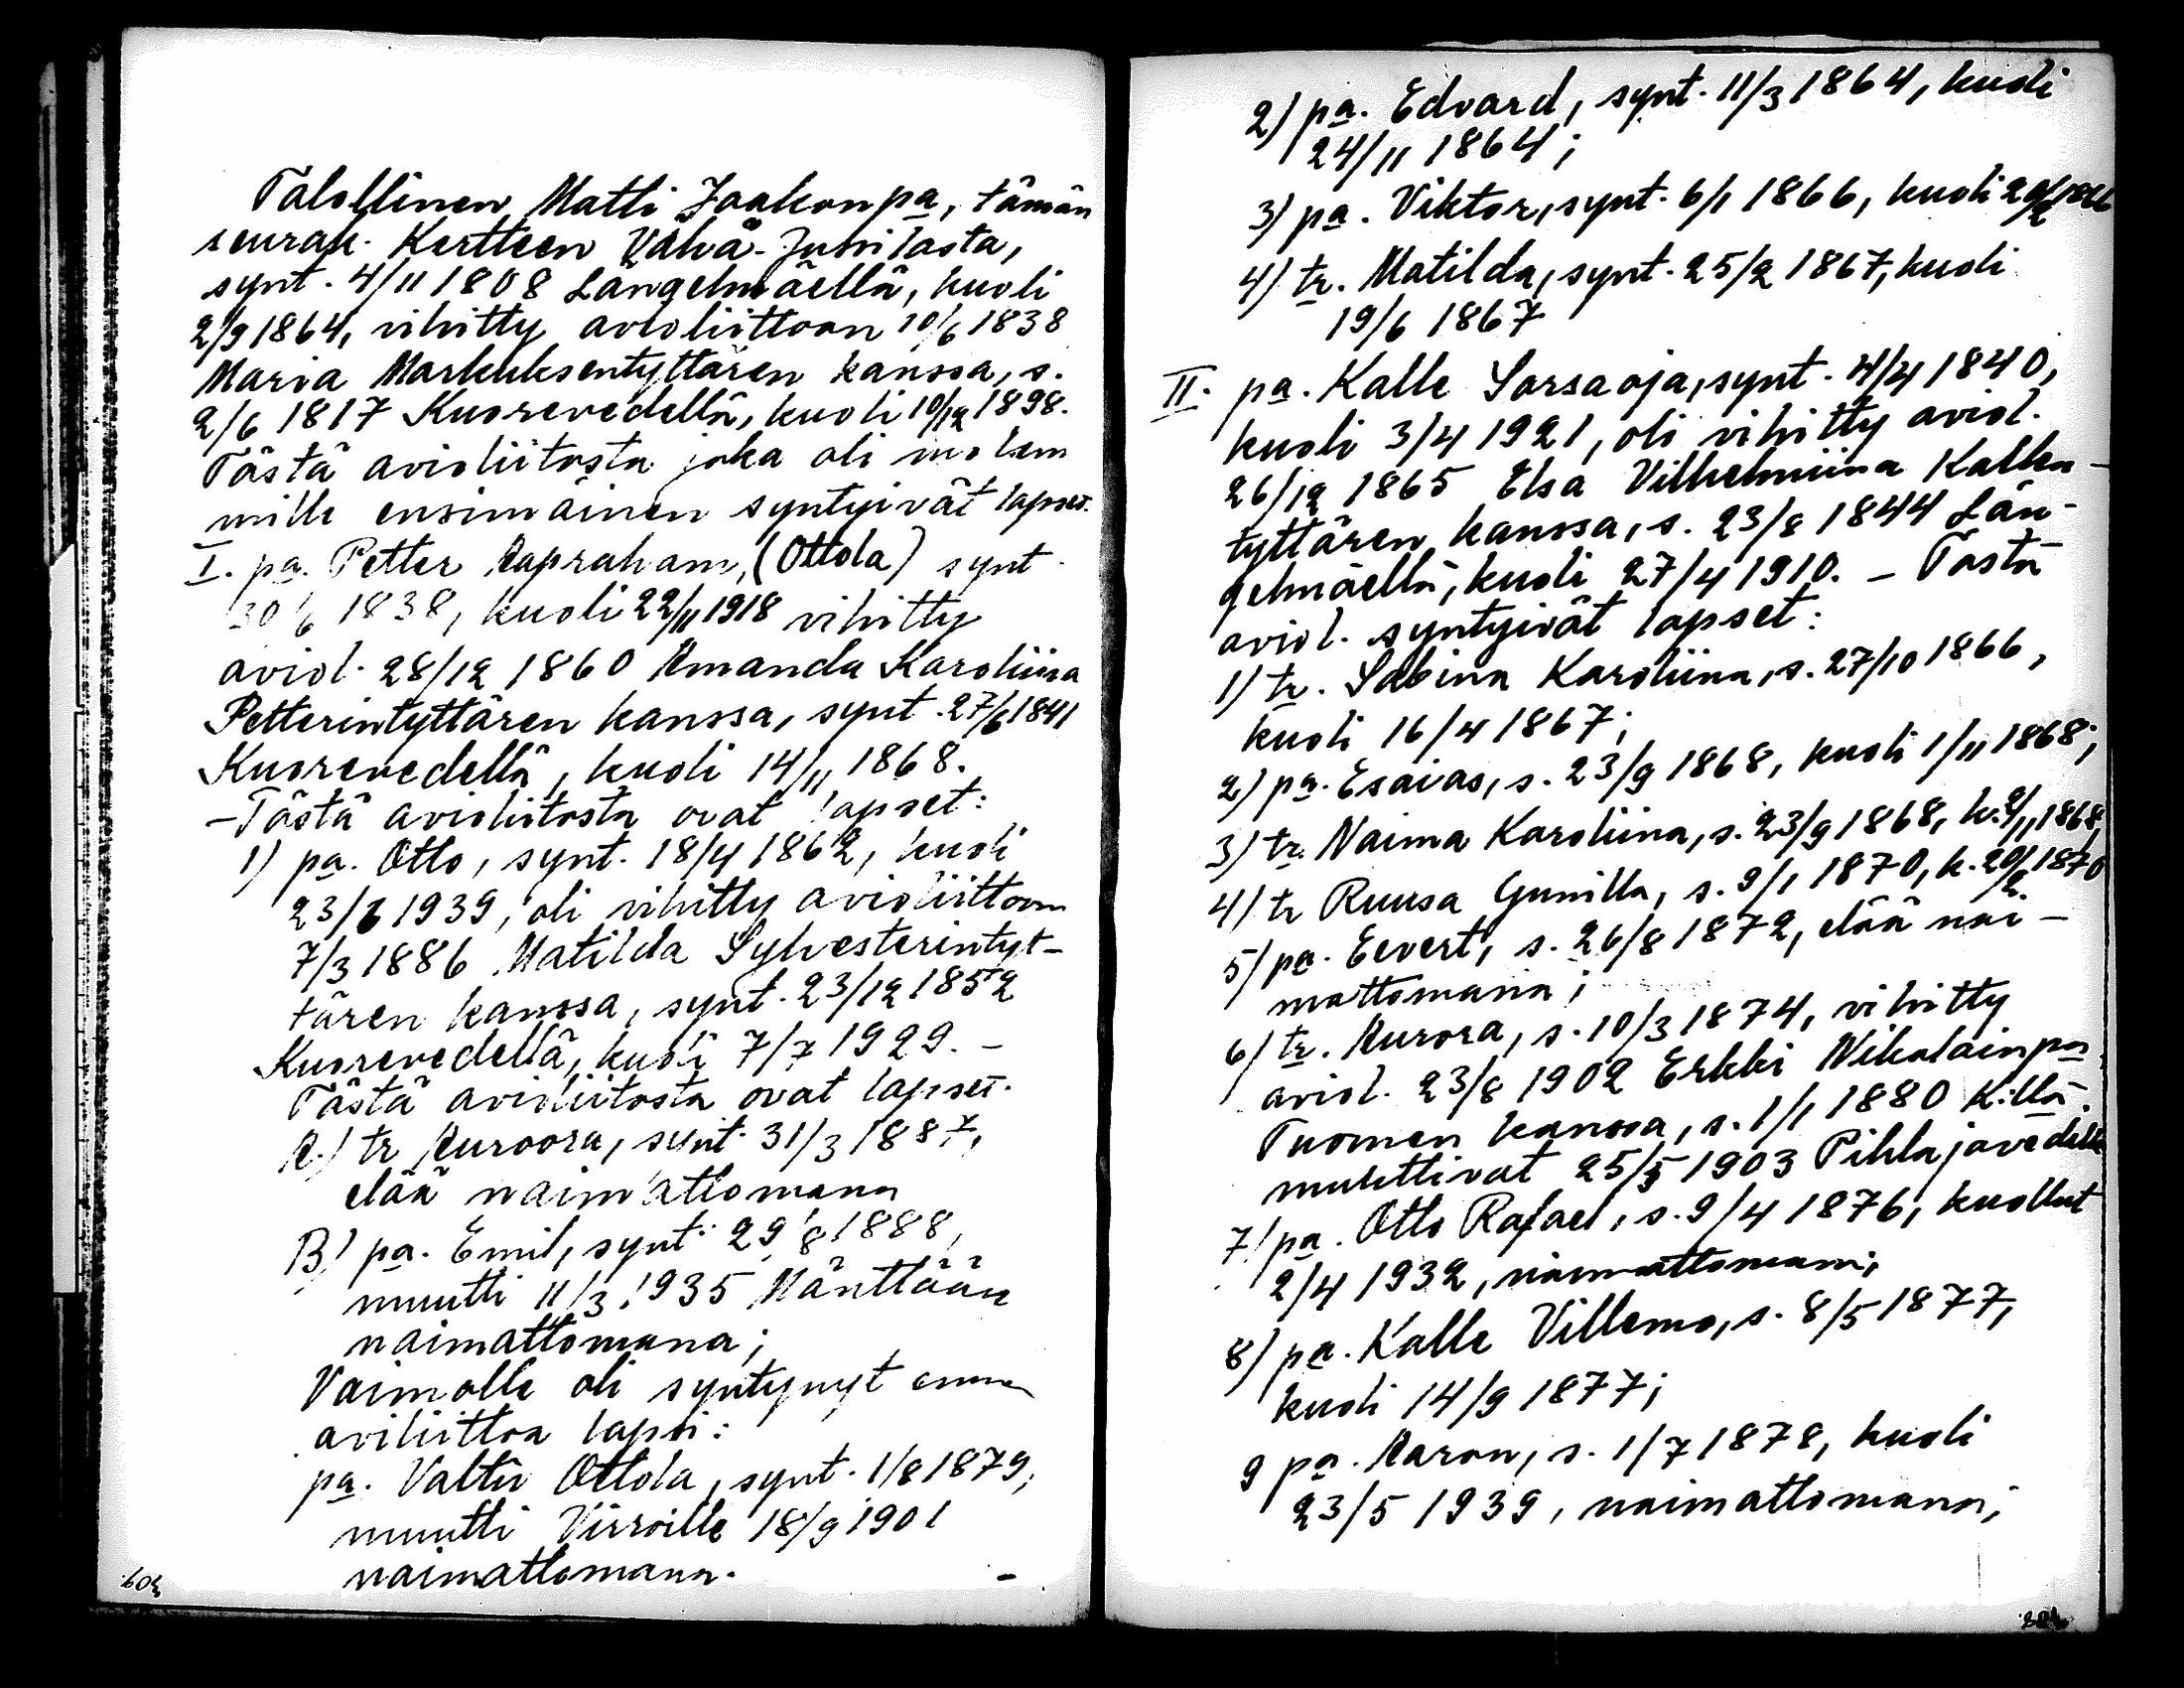 Talollinen Matti Jaakonpa, tämän
seurak. Kertteen Vähä-Jussilasta,
synt. 4/11 1808 Längelmäellä, kuoli
2/9 1864, vihitty avioliittoon 10/6 1838
Maria Markuksentyttären kanssa, s.
2/6 1817 Kuorevedellä, kuoli 10/12 1898.
Tästä avioliitosta joka oli molem
mille ensimäinen syntyivät lapset.
I. pa. Petter Aapraham, (Ottola) synt.
30/6 1838, kuoli 22/11 1918 vihitty
aviol. 28/12 1860 Amanda Karoliina
Petterintyttären kanssa, synt. 27/6 1841
Kuorevedellä, kuoli 14/11 1868.
-Tästä avioliitosta ovat lapset:
1) pa. Otto, synt. 18/4 1862, kuoli
23/6 1939, oli vihitty avioliittoon
7/3 1886 Matilda Sylvesterintyt-
tären kanssa, synt. 23/12 1852
Kuorevedellä, kuoli 7/7 1929. -
Tästä avioliitosta ovat lapset.
A.) tr Auroora, synt. 31/3 1887,
elää naimattomana
B) pa. Emil, synt. 29/8 1888,
muutti 11/3 1935 Mänttään
naimattomana;
Vaimolle oli syntynyt ennen
aviliittoa lapsi:
pa. Valter Ottola, synt. 1/8 1879,
muutti Virroille 18/9 1901
naimattomana. -
2) pa. Edvard, synt. 11/3 1864, kuoli
24/11 1864;
3) pa. Viktor, synt. 6/1 1866, kuoli 1866
4) tr. Matilda, synt. 25/2 1867, kuoli
19/6 1867
II. pa. Kalle Sorsaoja, synt. 4/4 1840,
kuoli 3/4 1921, oli vihitty aviol.
26/12 1865 Elsa Vilhelmiina Kallen-
tyttären kanssa, s. 23/8 1844 Län-
gelmäellä, kuoli 27/4 1910. - Tästä
aviol. syntyivät lapset:
1) tr. Sabina Karoliina, s. 27/10 1866,
kuoli 16/4 1867;
2) pa. Esaias, s. 23/9 1868, kuoli 1/11 1868;
3) tr. Naima Karoliina, s. 23/9 1868, k. 2/11 1868,
4) tr Ruusa Gunilla, s. 9/1 1870, k. 20/2 1870
5) pa. Eevert, s. 26/8 1872, elää nai-
mattomana;
6) tr. Aurora, s. 10/3 1874, vihitty
aviol. 23/8 1902 Erkki Nikolainpa.
Tuomen kanssa, s. 1/1 1880 K:llä.
muuttivat 25/5 1903 Pihlajavedelle
7) pa. Otto Rafael, s. 9/4 1876, kuollut
2/4 1932, naimattomana;
8) pa. Kalle Villemo, s. 8/5 1877,
kuoli 14/9 1877;
9 pa. Aaron, s. 1/7 1878, kuoli
23/5 1939, naimattomana;